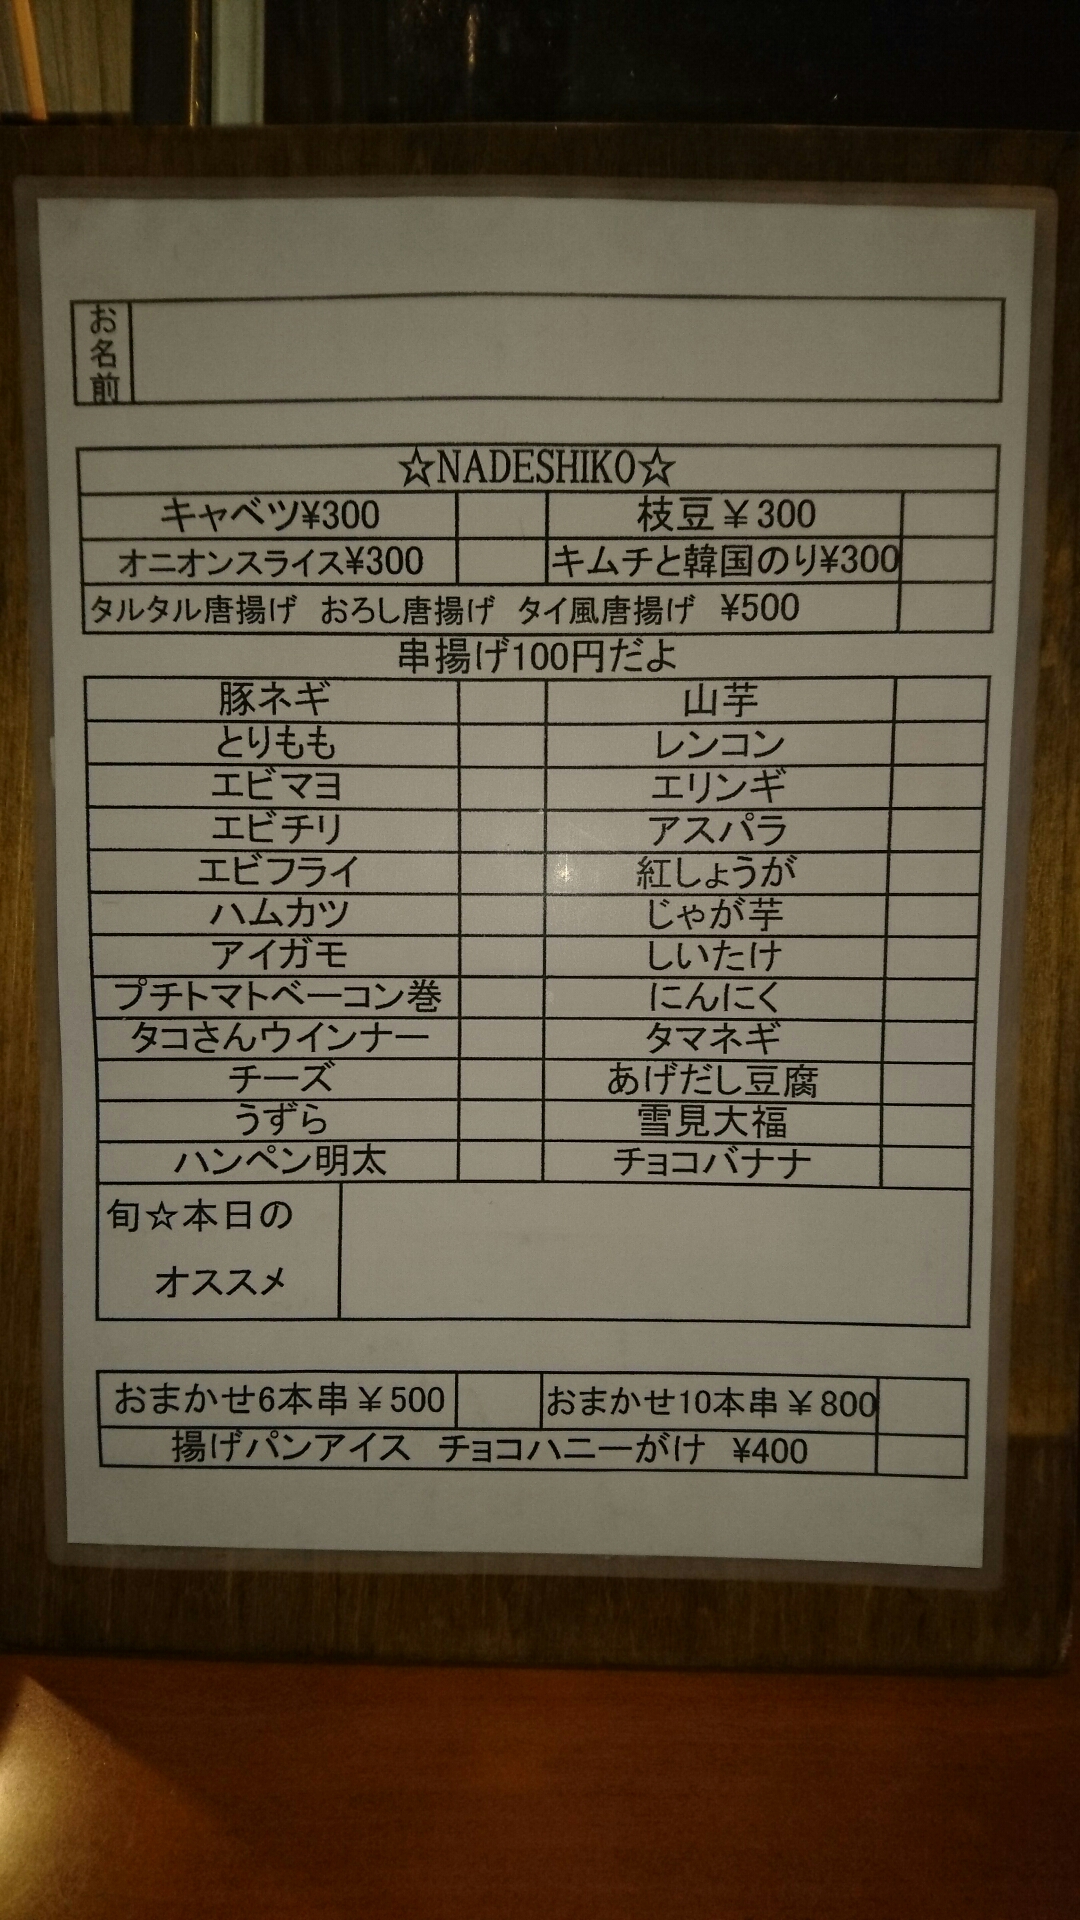 お名前
☆NADESHIKO☆
キャベツ¥300 枝豆￥300
オニオンスライス¥300 キムチと韓国のり¥300
タルタル唐揚げ おろし唐揚げ タイ風唐揚げ ¥500
串揚げ100円だよ
豚ネギ 山芋
とりもも レンコン
エビマヨ エリンギ
エビチリ アスパラ
エビフライ 紅しょうが
ハムカツ じゃが芋
アイガモ しいたけ
プチトマトベーコン巻 にんにく
タコさんウインナー タマネギ
チーズ あげだし豆腐
うずら 雪見大福
ハンペン明太 チョコバナナ
旬☆本日の
オススメ
おまかせ6本串￥500 おまかせ10本串￥800
揚げパンアイス チョコハニーがけ ¥400